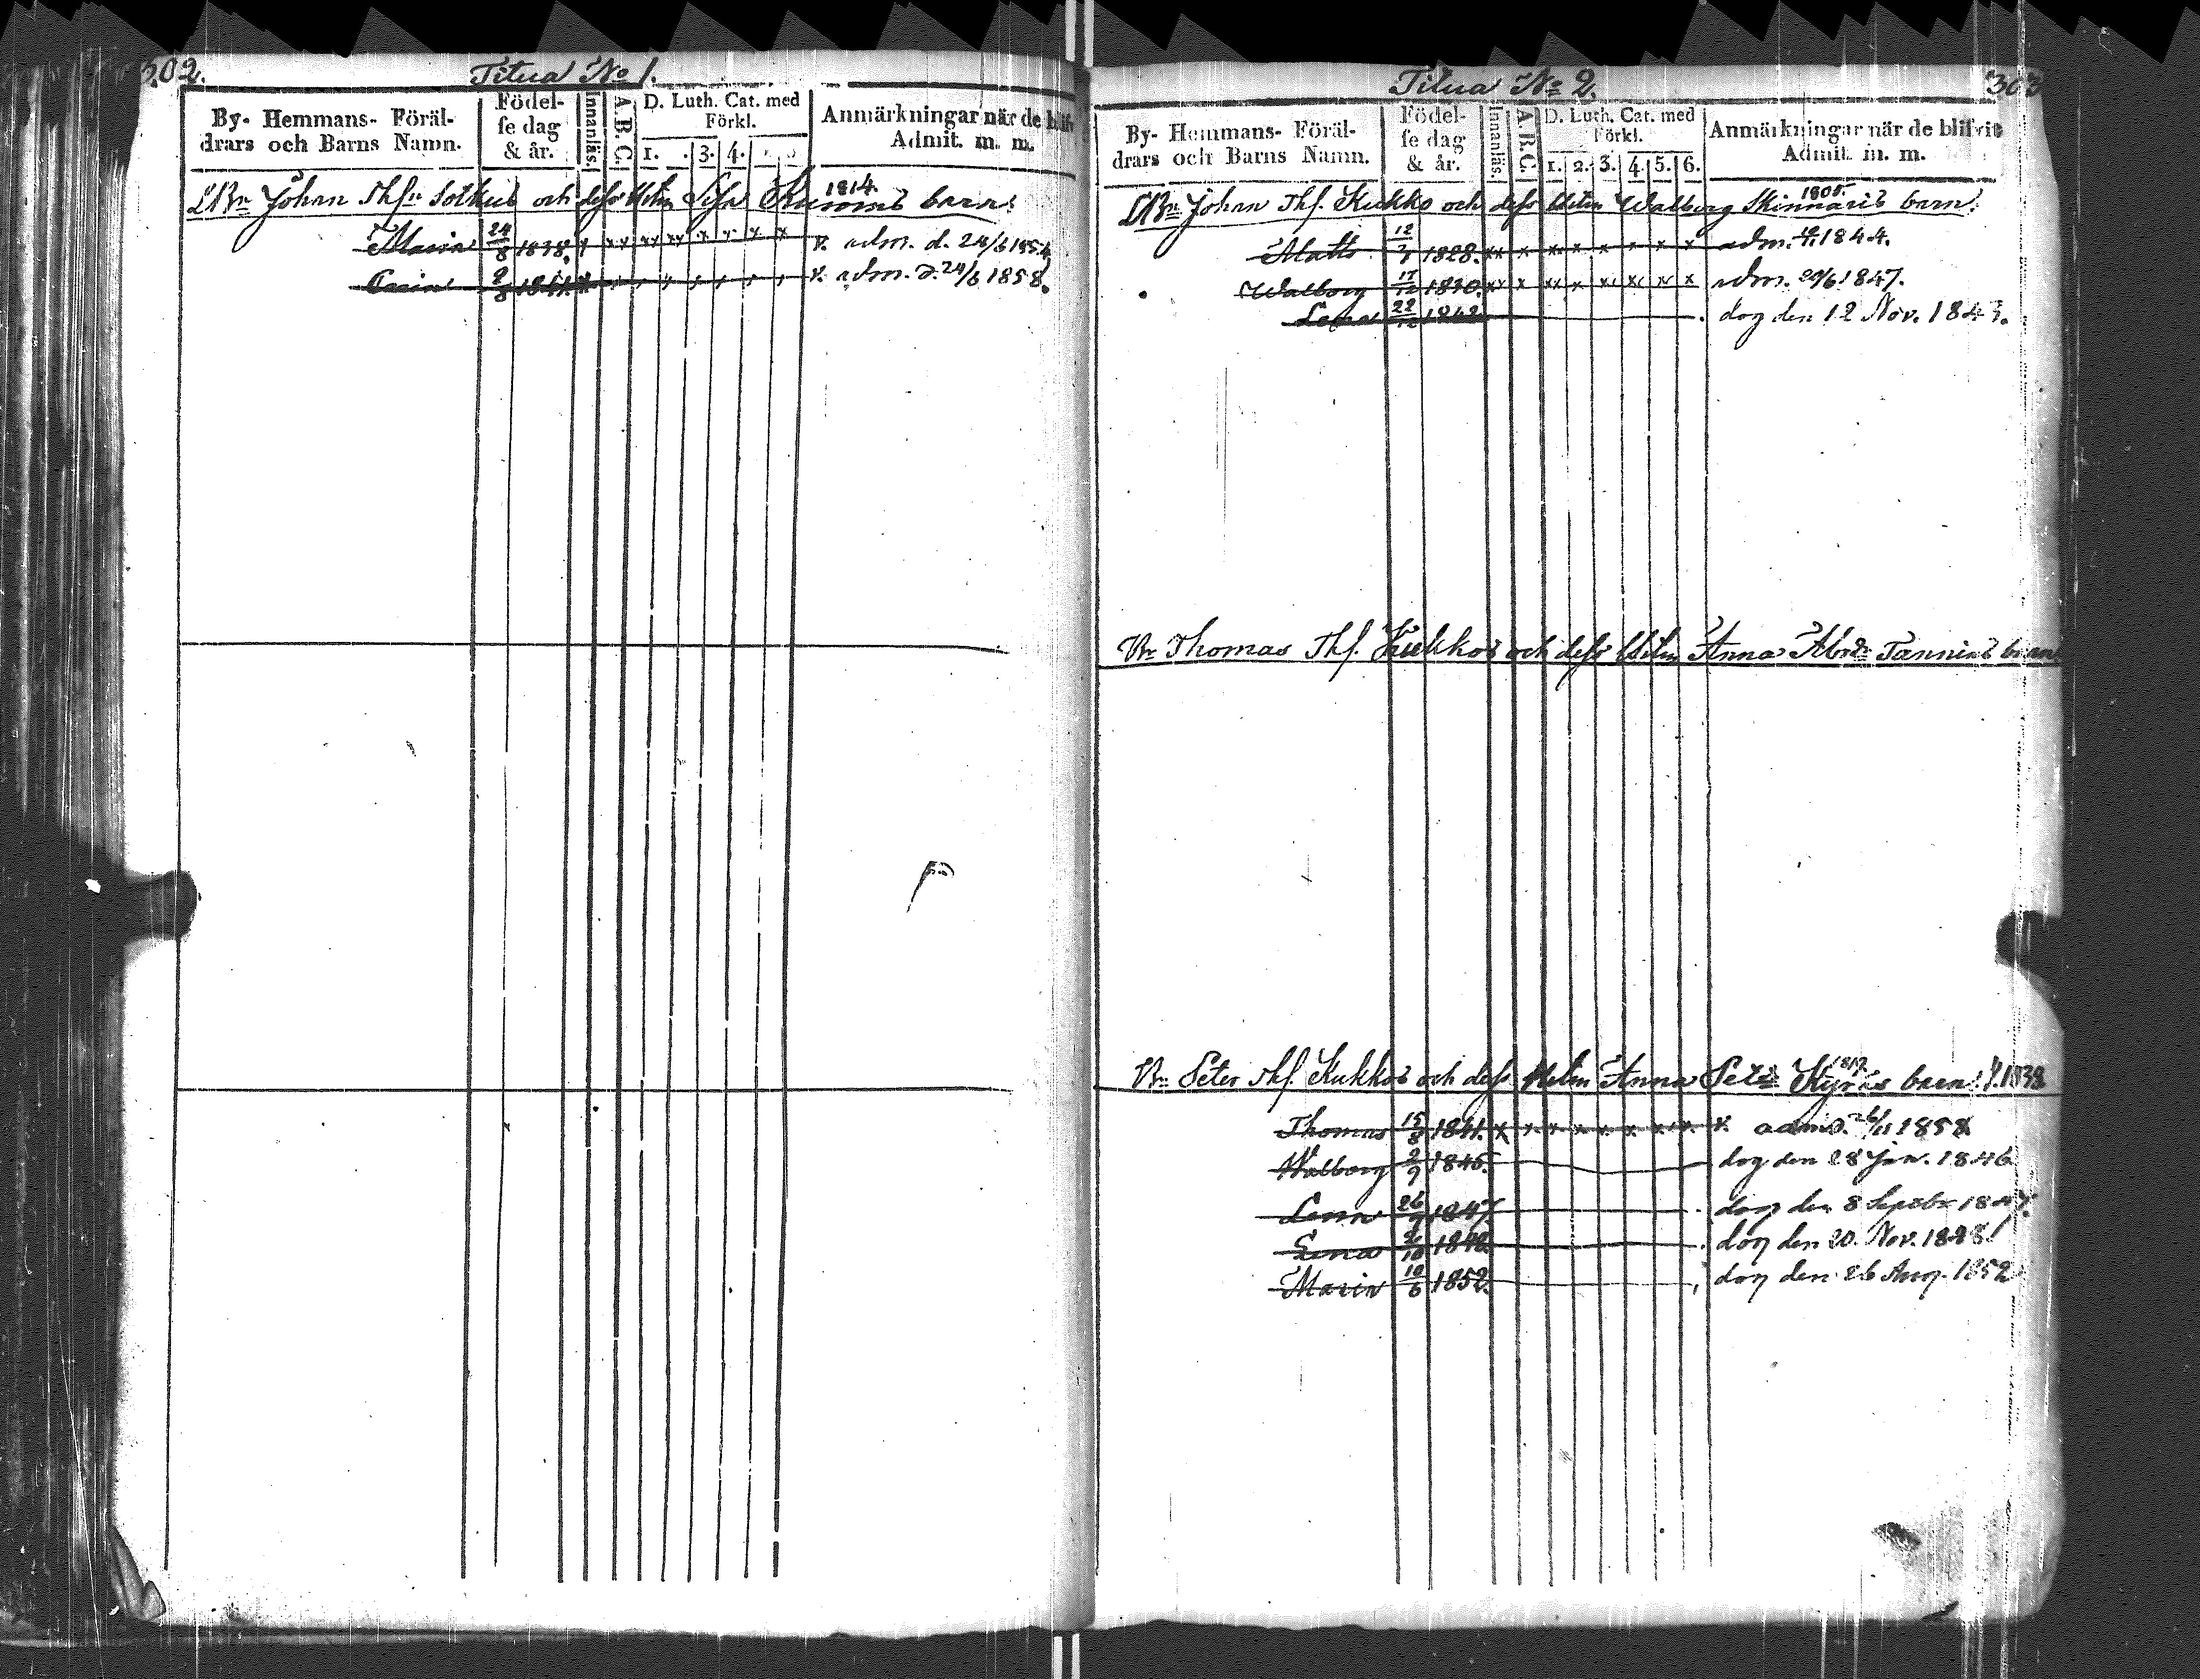 302.
Titua No 1.
By- Hemmans- Föräl-
drars och Barns Namn.
Födel-
se dag
& år.
Innanläs.
A.B.C.
D. Luth. Cat. med
Förkl.
1. 3. 4.
Anmärkningar när de blifv
Admit. m. m.
Johan Thfn och dess Lisa 1814. barn:
Maria 24/8 1838. x xx xx xx x x x x x. adm. d. 24/6 1854
1841. x. adm. d. 24/6 1858.
Titua No 2.
303
By- Hemmans- Föräl-
drars och Barns Namn.
Födel-
se dag
& år.
Innanläs.
A.B.C.
D. Luth. Cat. med
Förkl.
1. 2. 3. 4. 5. 6.
Anmärkningar när de blifvit
Admit. m. m.
Johan Thf. Kukko och dess Walborg Skinnaris 1805. barn.
Matts 1828. adm. 1844.
Walborg 17/12 1830. adm. 20/6 1847.
Lena 22/12 1842 dog den 12 Nov. 1843.
Bn Thomas Thf. Kukkos och dess Anna Abrs Tannins barn
Bn Peter Thf. Kukkos och dess Anna Petr barn:
Thomas 15/8 1841. 1858.
Walborg 2/9 1845. dog den 28 Jan. 1846
Lena 1847. dog den 8 Septbr 1847.
Lena 1848. dog den 20. Nov. 1848
Maria 10/6 1852. dog den 26 Aug. 1852